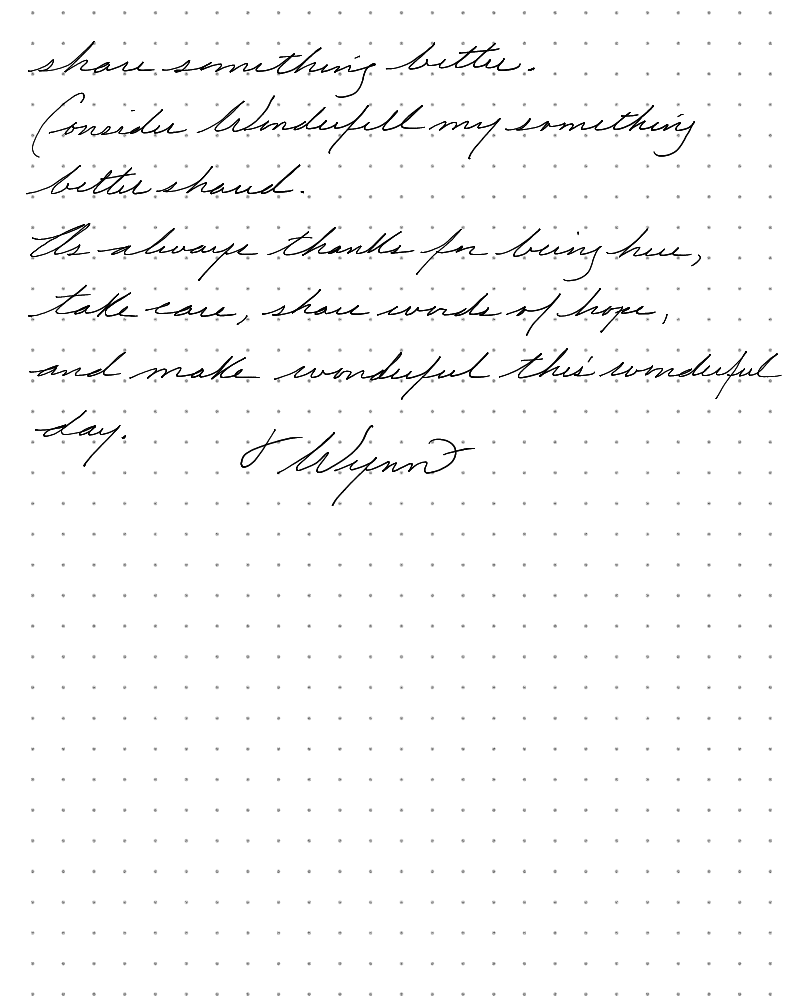 share something better.
Consider Wonderfell my something
better shared.
As always thanks for being here,
take care, share words of hope,
and make wonderful this wonderful
day.
Wynn